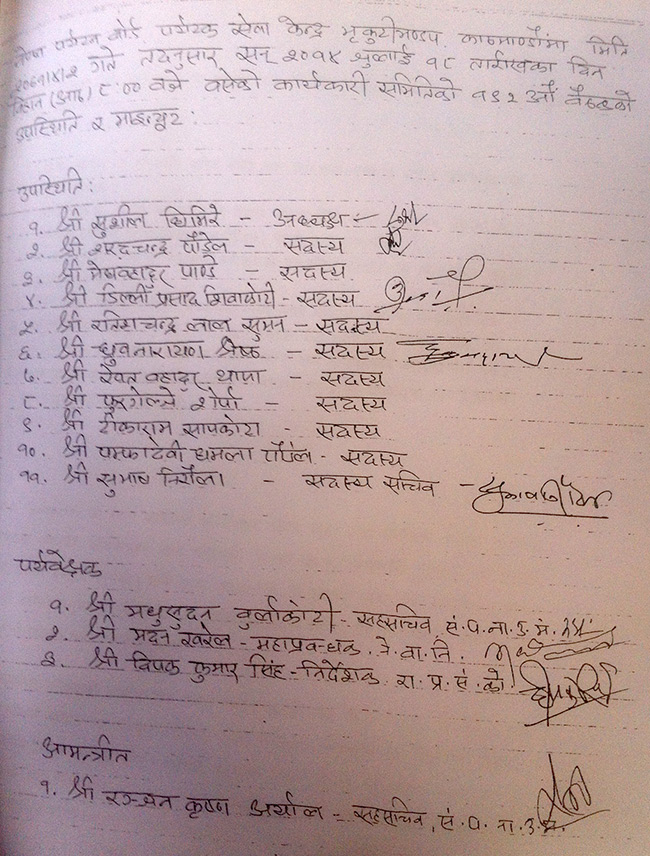 नेपाल पर्यटन बोर्ड पर्यटक सेवा केन्द्र भृकुटीमण्डप काठमाण्डौंमा मिति
२०७१।४।२ गते तदनुसार सन् २०१४ जुलाई १८ तारिखका दिन
विहान ८:०० वजे वसेको कार्यकारी समितिको १९२ औं वैठकको
उपस्थिति र माइन्यूट :
उपस्थिति :
१. श्री सुशील घिमिरे - अध्यक्ष -
२. श्री शरदचन्द्र पौडेल - सदस्य
३. श्री मेघबहादुर पाण्डे - सदस्य
४. श्री डिल्ली प्रसाद शिवाकोटी - सदस्य
५. श्री रविमचन्द्र लाल सुमन - सदस्य
६. श्री ध्रुवनारायण श्रेष्ठ - सदस्य
७. श्री रेवत वहादुर थापा - सदस्य
८. श्री फुरगेल्जे शेर्पा - सदस्य
९. श्री टीकाराम सापकोटा - सदस्य
१०. श्री पम्फादेवी धमला पौडेल - सदस्य
११. श्री सुभाष निरौला - सदस्य सचिव -
पर्यवेक्षक
१. श्री मधुसुदन वुर्लाकोटी - सहसचिव सं.प.ना.उ.मं.
२. श्री मदन खरेल - महाप्रवन्धक ने.वा.नि.
३. श्री दिपक कुमार सिंह - निर्देशक रा.प्र.सं.को
आमन्त्रीत
१. श्री रञ्जन कृष्ण अर्याल - सहसचिव, सं.प.ना.उ.म.